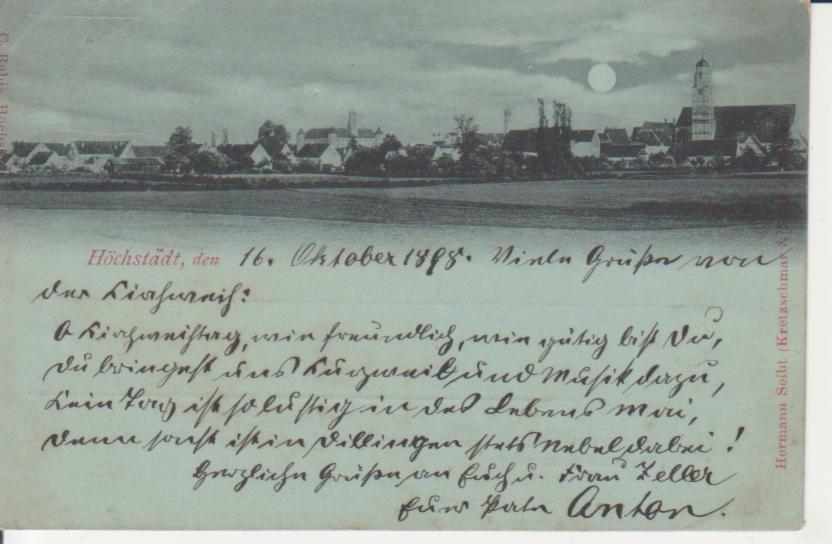 Höchstädt, den 16. Oktober 1898. Viele Grüße von
der Kirchweih:
O Kirchweihtag, wie freundlich, wie gütig bist Du,
Du bringest uns Kurzweil und Musik dazu,
Kein Tag ist so lustig in des Lebens Mai,
Denn sonst ist in Dillingen stets Nebel dabei!
Herzliche Grüße an Euch u. Frau Zeller
Euer Pate Anton.
Hermann Seibt (Kretzschmar &